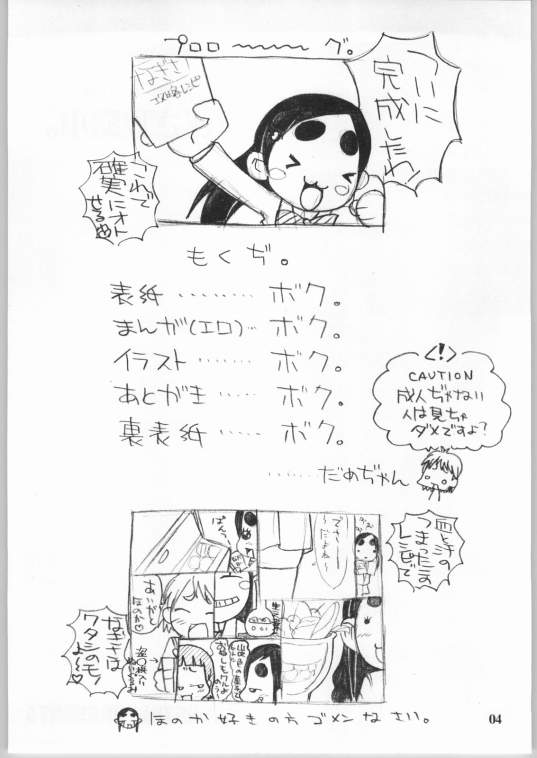 プロロ〜〜〜グ。
ついに
完成したわ!
なぎさ
攻略レシピ
これで
確実にオト
せるわ
もくぢ。
表紙………ボク。
まんが(エロ)…ボク。
イラスト……ボク。
あとがき……ボク。
裏表紙……ボク。
……だめぢゃん
<!>
CAUTION
成人ぢゃない
人は見ちゃ
ダメですよ?
血と汗の
つまったこの
レシピで
ありがと
ほのか♡
なぎさは
ワタシのモノ
よ〜♡
ほのか好きの方ゴメンなさい。
04